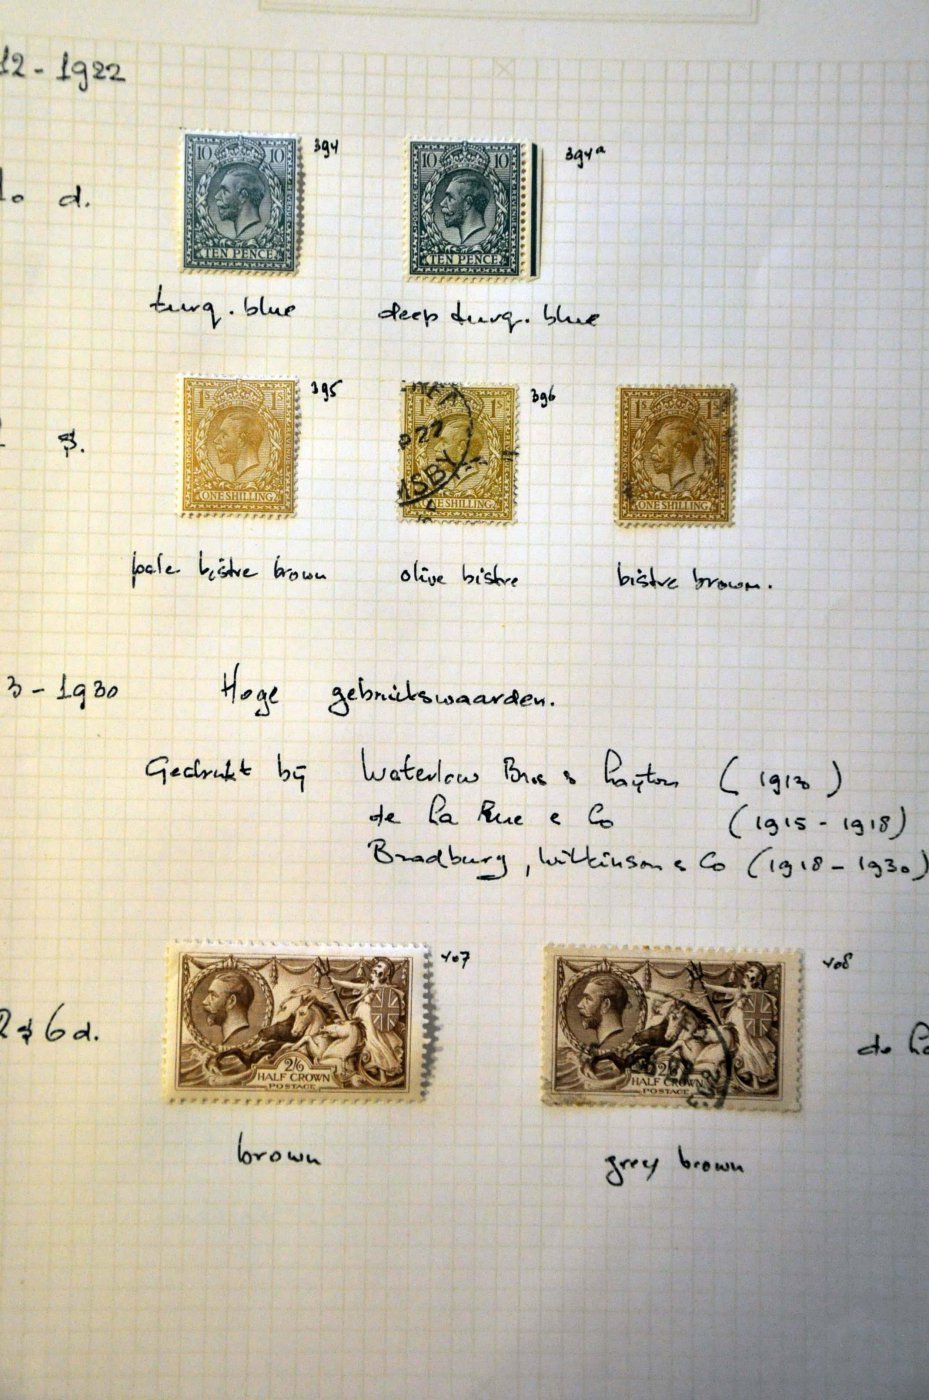 12 - 1922
10 d.
10 10
TEN PENCE
394
10 10
TEN PENCE
394a
turq. blue
deep turq. blue
S.
1S 1S
ONE SHILLING
395
1S 1S
ONE SHILLING
P 22
MSBY
396
1S 1S
ONE SHILLING
pale bistre brown
olive bistre
bistre brown.
3 - 1930 Hoge gebruikswaarden.
Gedrukt bij Waterlow Bros & Layton (1913)
de La Rue & Co (1915 - 1918)
Bradbury, Wilkinson & Co (1918 - 1930)
2s 6d.
2/6
HALF CROWN
POSTAGE
407
2/6
HALF CROWN
POSTAGE
408
de La
brown
grey brown